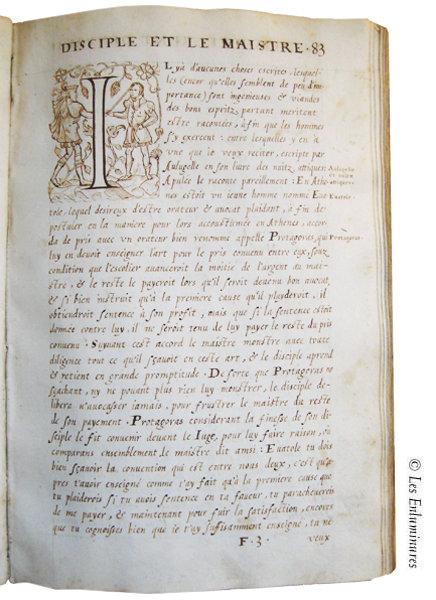 DISCIPLE ET LE MAISTRE· 83
IL y a d'aucunes choses escrites, lesquel-
les (encor qu'elles semblent de peu d'im-
portance) sont ingenieuses & viandes
des bons espritz, partant meritent
estre racontées, à fin que les hommes
s'y exercent: entre lesquelles y en à
une que ie veux reciter, escripte par
Aulugelle en son liure des nuitz attiques
Apulee le raconte pareillement: En Athe-
nes estoit un ieune homme nommé Eua-
tole, lequel desireux d'estre orateur & auocat plaidant, à fin de
postuler en la maniere pour lors accoustumée en Athenes, accor-
da de pris auec un orateur bien renommé appellé Protagoras, qui
luy en deuoit enseigner l'art pour le pris conuenu entre eux, souz
condition que l'escolier auanceroit la moitié de l'argent au mai-
stre, & le reste le payeroit lors qu'il seroit deuenu bon auocat,
& si bien instruit qu'à la premiere cause qu'il playderoit, il
obtiendroit sentence à son profit, mais que si la sentence estoit
donnée contre luy, il ne seroit tenu de luy payer le reste du pris
conuenu: Suyuant cest accord le maistre monstre auec toute
diligence tout ce qu'il sçauoit en ceste art, & le disciple aprend
& retient en grande promptitude. De sorte que Protagoras ne
sçachant, ny ne pouuant plus rien luy monstrer, le disciple de-
libera n'auocasser iamais, pour frustrer le maistre du reste
de son payement. Protagoras considerant la finesse de son di-
sciple le fit conuenir deuant le Iuge, pour luy faire raison, où
comparans ensemblement le maistre dit ainsi: Euatole tu dois
bien sçauoir la conuention qui est entre nous deux, c'est qu'a-
pres t'auoir enseigné comme i'ay fait qu'à la premiere cause que
tu plaiderois si tu auois sentence en ta faueur, tu paracheuerois
de me payer, & maintenant pour fuir la satisfaction, encores
que tu cognoisses bien que ie t'ay suffisamment enseigné, tu ne
F·3· veux
Aulugelle
es nuitz
attiques
Euatole
Protagoras
© Les Enluminures